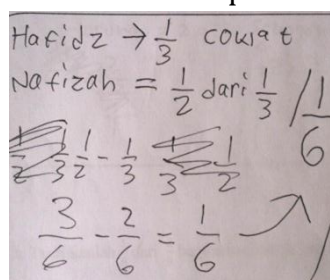 Hafidz → 1/3 coklat
Nafizah = 1/2 dari 1/3 / 1/6
1/2 - 1/3 1/2
3/6 - 2/6 = 1/6